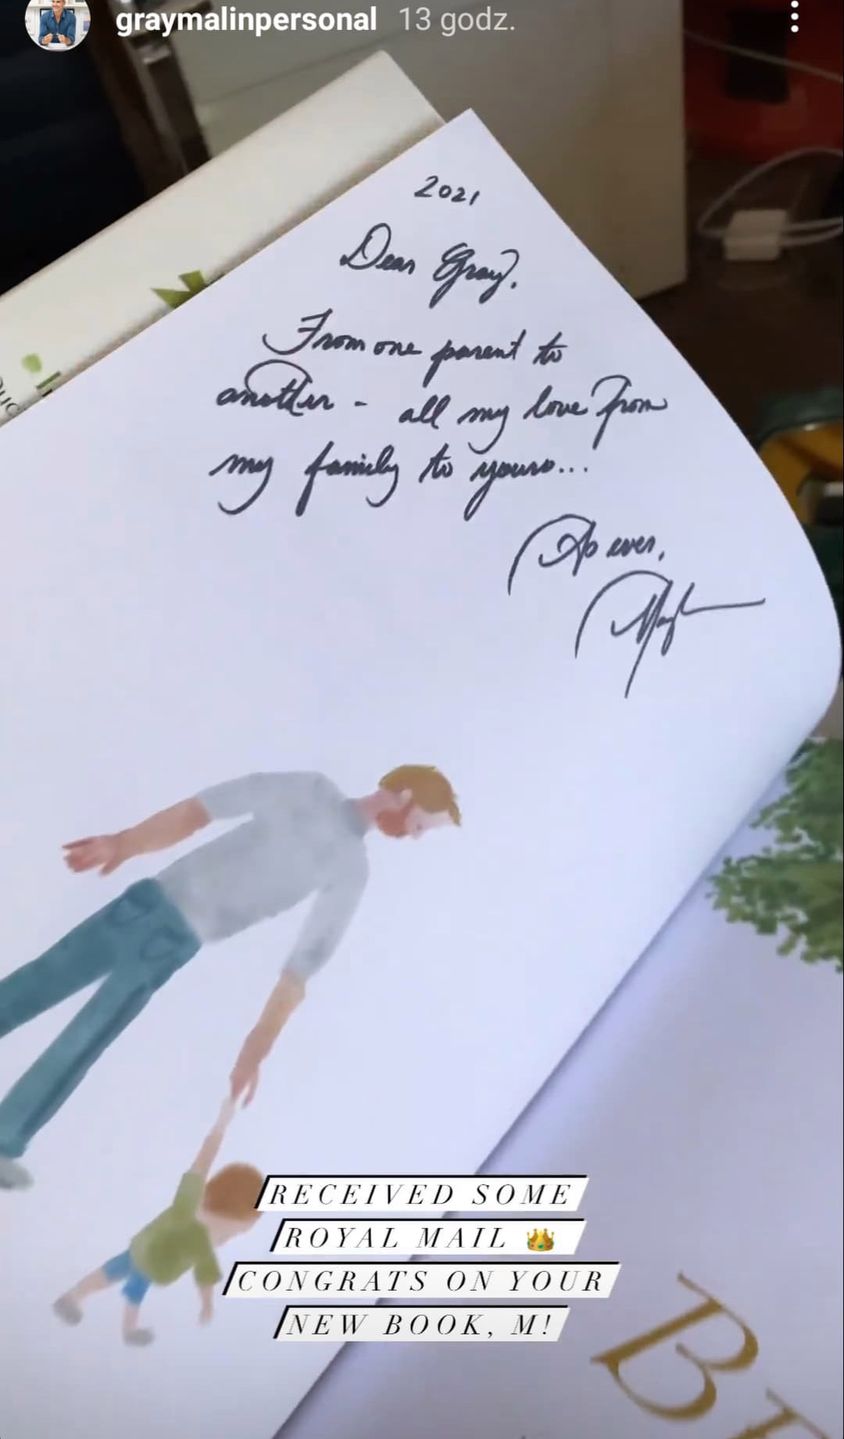 graymalinpersonal 13 godz.
2021
Dear Gray,
From one parent to
another - all my love from
my family to yours...
As ever,
RECEIVED SOME
ROYAL MAIL 👑
CONGRATS ON YOUR
NEW BOOK, M!
B